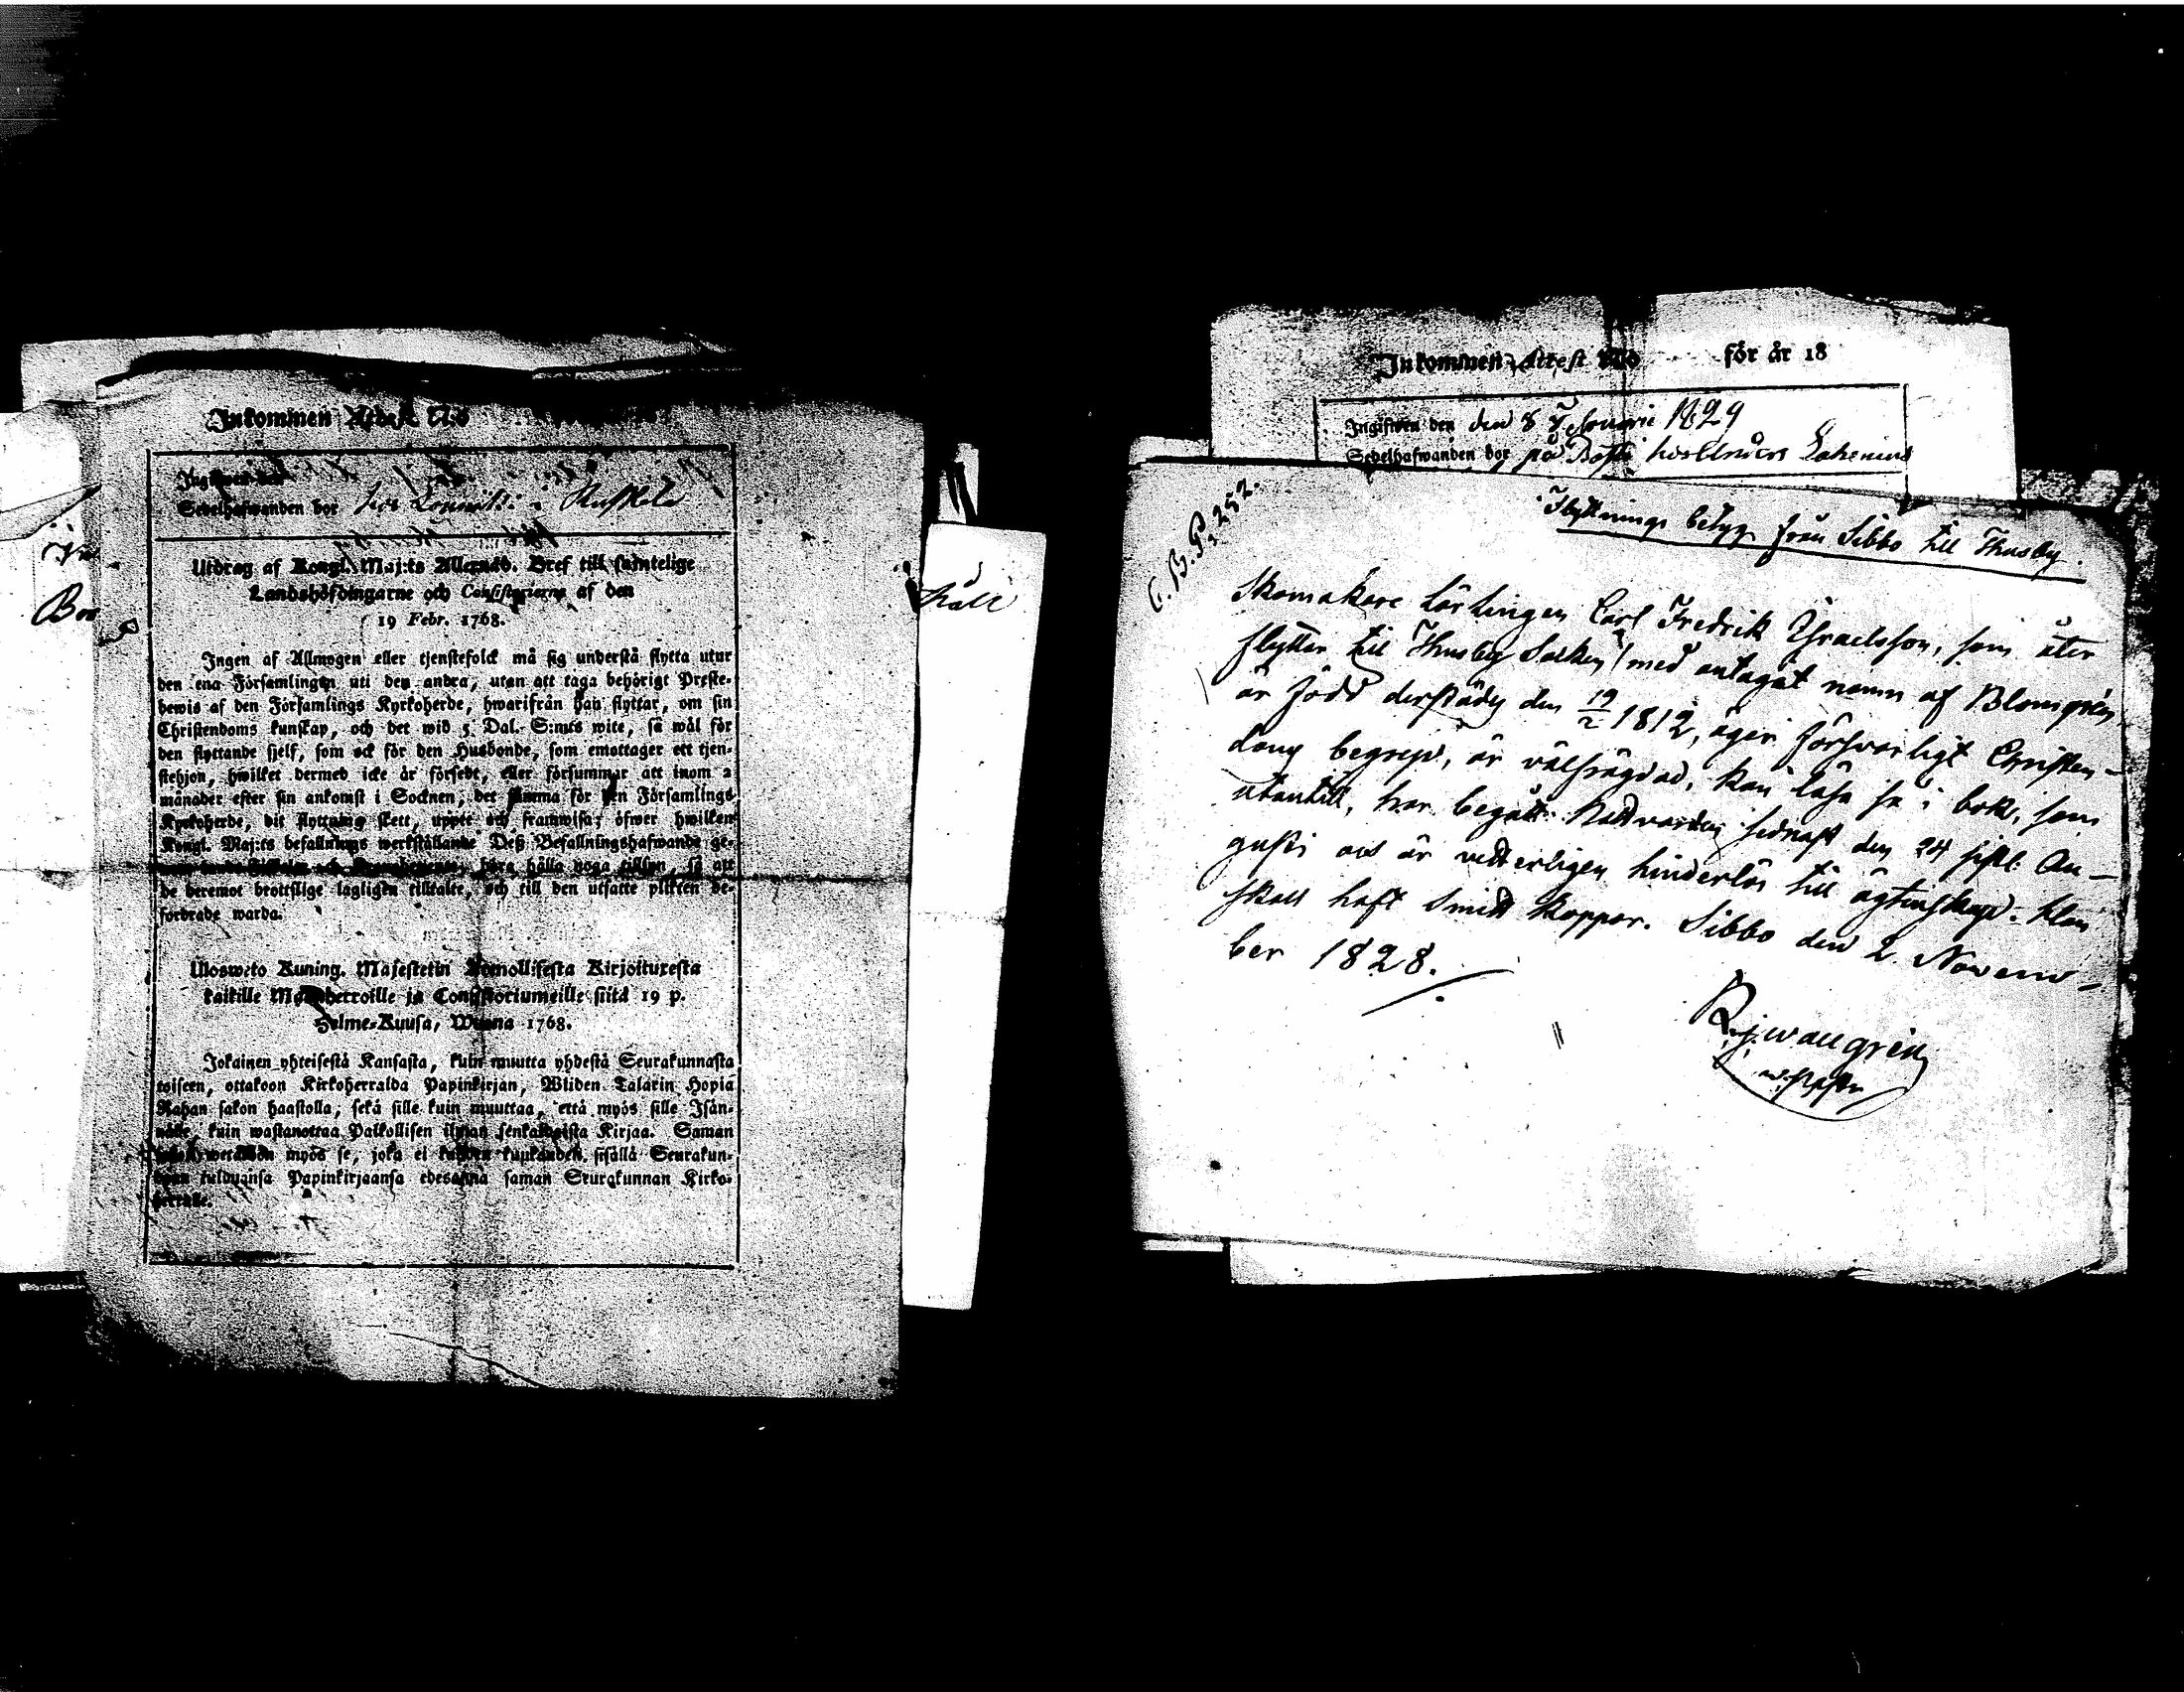 Inkommen Attest No
Ingifwen den
Sedelhafwanden bor hos
Utdrag af Kongl. Maj:ts Allernåd. Bref till samtelige
Landshöfdingarne och Consistorierne af den
19 Febr. 1768.
Ingen af Allmogen eller tjenstefolck må sig understå flytta utur
den ena Församlingen uti den andra, utan att taga behörigt Preste-
bewis af den Församlings Kyrkoherde, hwarifrån han flyttar, om sin
Christendoms kunskap, och det wid 5 Dal. S:mts wite, så wäl för
den flyttande sjelf, som ock för den Husbonde, som emottager ett tjen-
stehjon, hwilket dermed icke är försedt, eller försummar att inom 2
månader efter sin ankomst i Socknen, det samma för den Församlings
Kyrkoherde, dit flyttning skett, uppte och framwisa; öfwer hwilken
Kongl. Maj:ts befallnings werkställande Deß Befallningshafwande ge-
böra hålla noga tillsyn, så att
de deremot brottslige lagligen tilltalte, och till den utsatte plikten be-
fordrade warda.
Ulosweto Kuning. Majestetin Armollisesta Kirjoituresta
kaikille Maanherroille ja Consistoriumeille siitä 19 p.
Helme-Kuusa, Wuona 1768.
Jokainen yhteisestä Kansasta, kuin muutta yhdestä Seurakunnasta
toiseen, ottakoon Kirkoherralda Papinkirjan, Wliden Talarin Hopia
Rahan sakon haastolla, sekä sille kuin muuttaa, että myös sille Isän-
nälle, kuin wastanottaa Palkollisen ilman senkaltaista Kirjaa. Saman
wetäkön myös se, joka ei kahden kuukauden sisällä Seurakun-
daan tulduansa Papinkirjaansa edesanna saman Seurakunnan Kirko-
herralle.
Bor
Inkommen Attest No för år 18
Ingifwen den den 8 Februarii 1829
Sedelhafwanden bor på
C.B.P. 252.
Flyttnings betyg från Sibbo till Thusby.
Skomakare Lärlingen Carl Fredrik Ysraelsson, som åter
flyttar till Thusby Socken, med antagit namn af Blomgrén,
är född derstädes den 19/2 1812, äger försvarligt Christen-
doms begrep, är välfrägdad, kan läsa så i bok, som
utantill, har begått Nattvarden sednast den 24 sistl: Au-
gusti och är vetterligen hinderlös till ägtenskap. Klen
skall haft Smitt koppor. Sibbo den 2 Novem-
ber 1828.